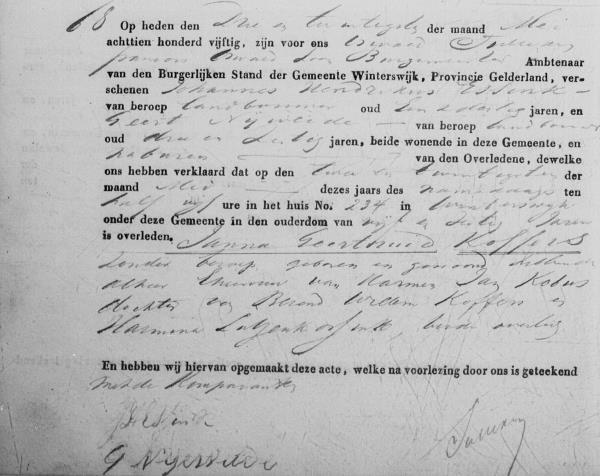 68 Op heden den Drie en twintigsten der maand Mei
achttien honderd vijftig, zijn voor ons
Ambtenaar
van den Burgerlijken Stand der Gemeente Winterswijk, Provincie Gelderland, ver-
schenen Johannes Hendrikus Essink
van beroep landbouwer oud jaren, en
Geert Nijweide van beroep landbouwer
oud drie en jaren, beide wonende in deze Gemeente, en
naburen van den Overledene, dewelke
ons hebben verklaard dat op den twee en twintigsten der
maand Mei dezes jaars des namiddags ten
half vijf ure in het huis No. 234 in Winterswijk
onder deze Gemeente in den ouderdom van vijf en jaren
is overleden, Janna Geertruid Koffers
zonder beroep geboren en gewoond hebbende
alhier van Harmen Jan Kobus
dochter van Berend Willem Koffers en
Harmina beide overleden
En hebben wij hiervan opgemaakt deze acte, welke na voorlezing door ons is geteekend
met de Komparanten
G Nijweide